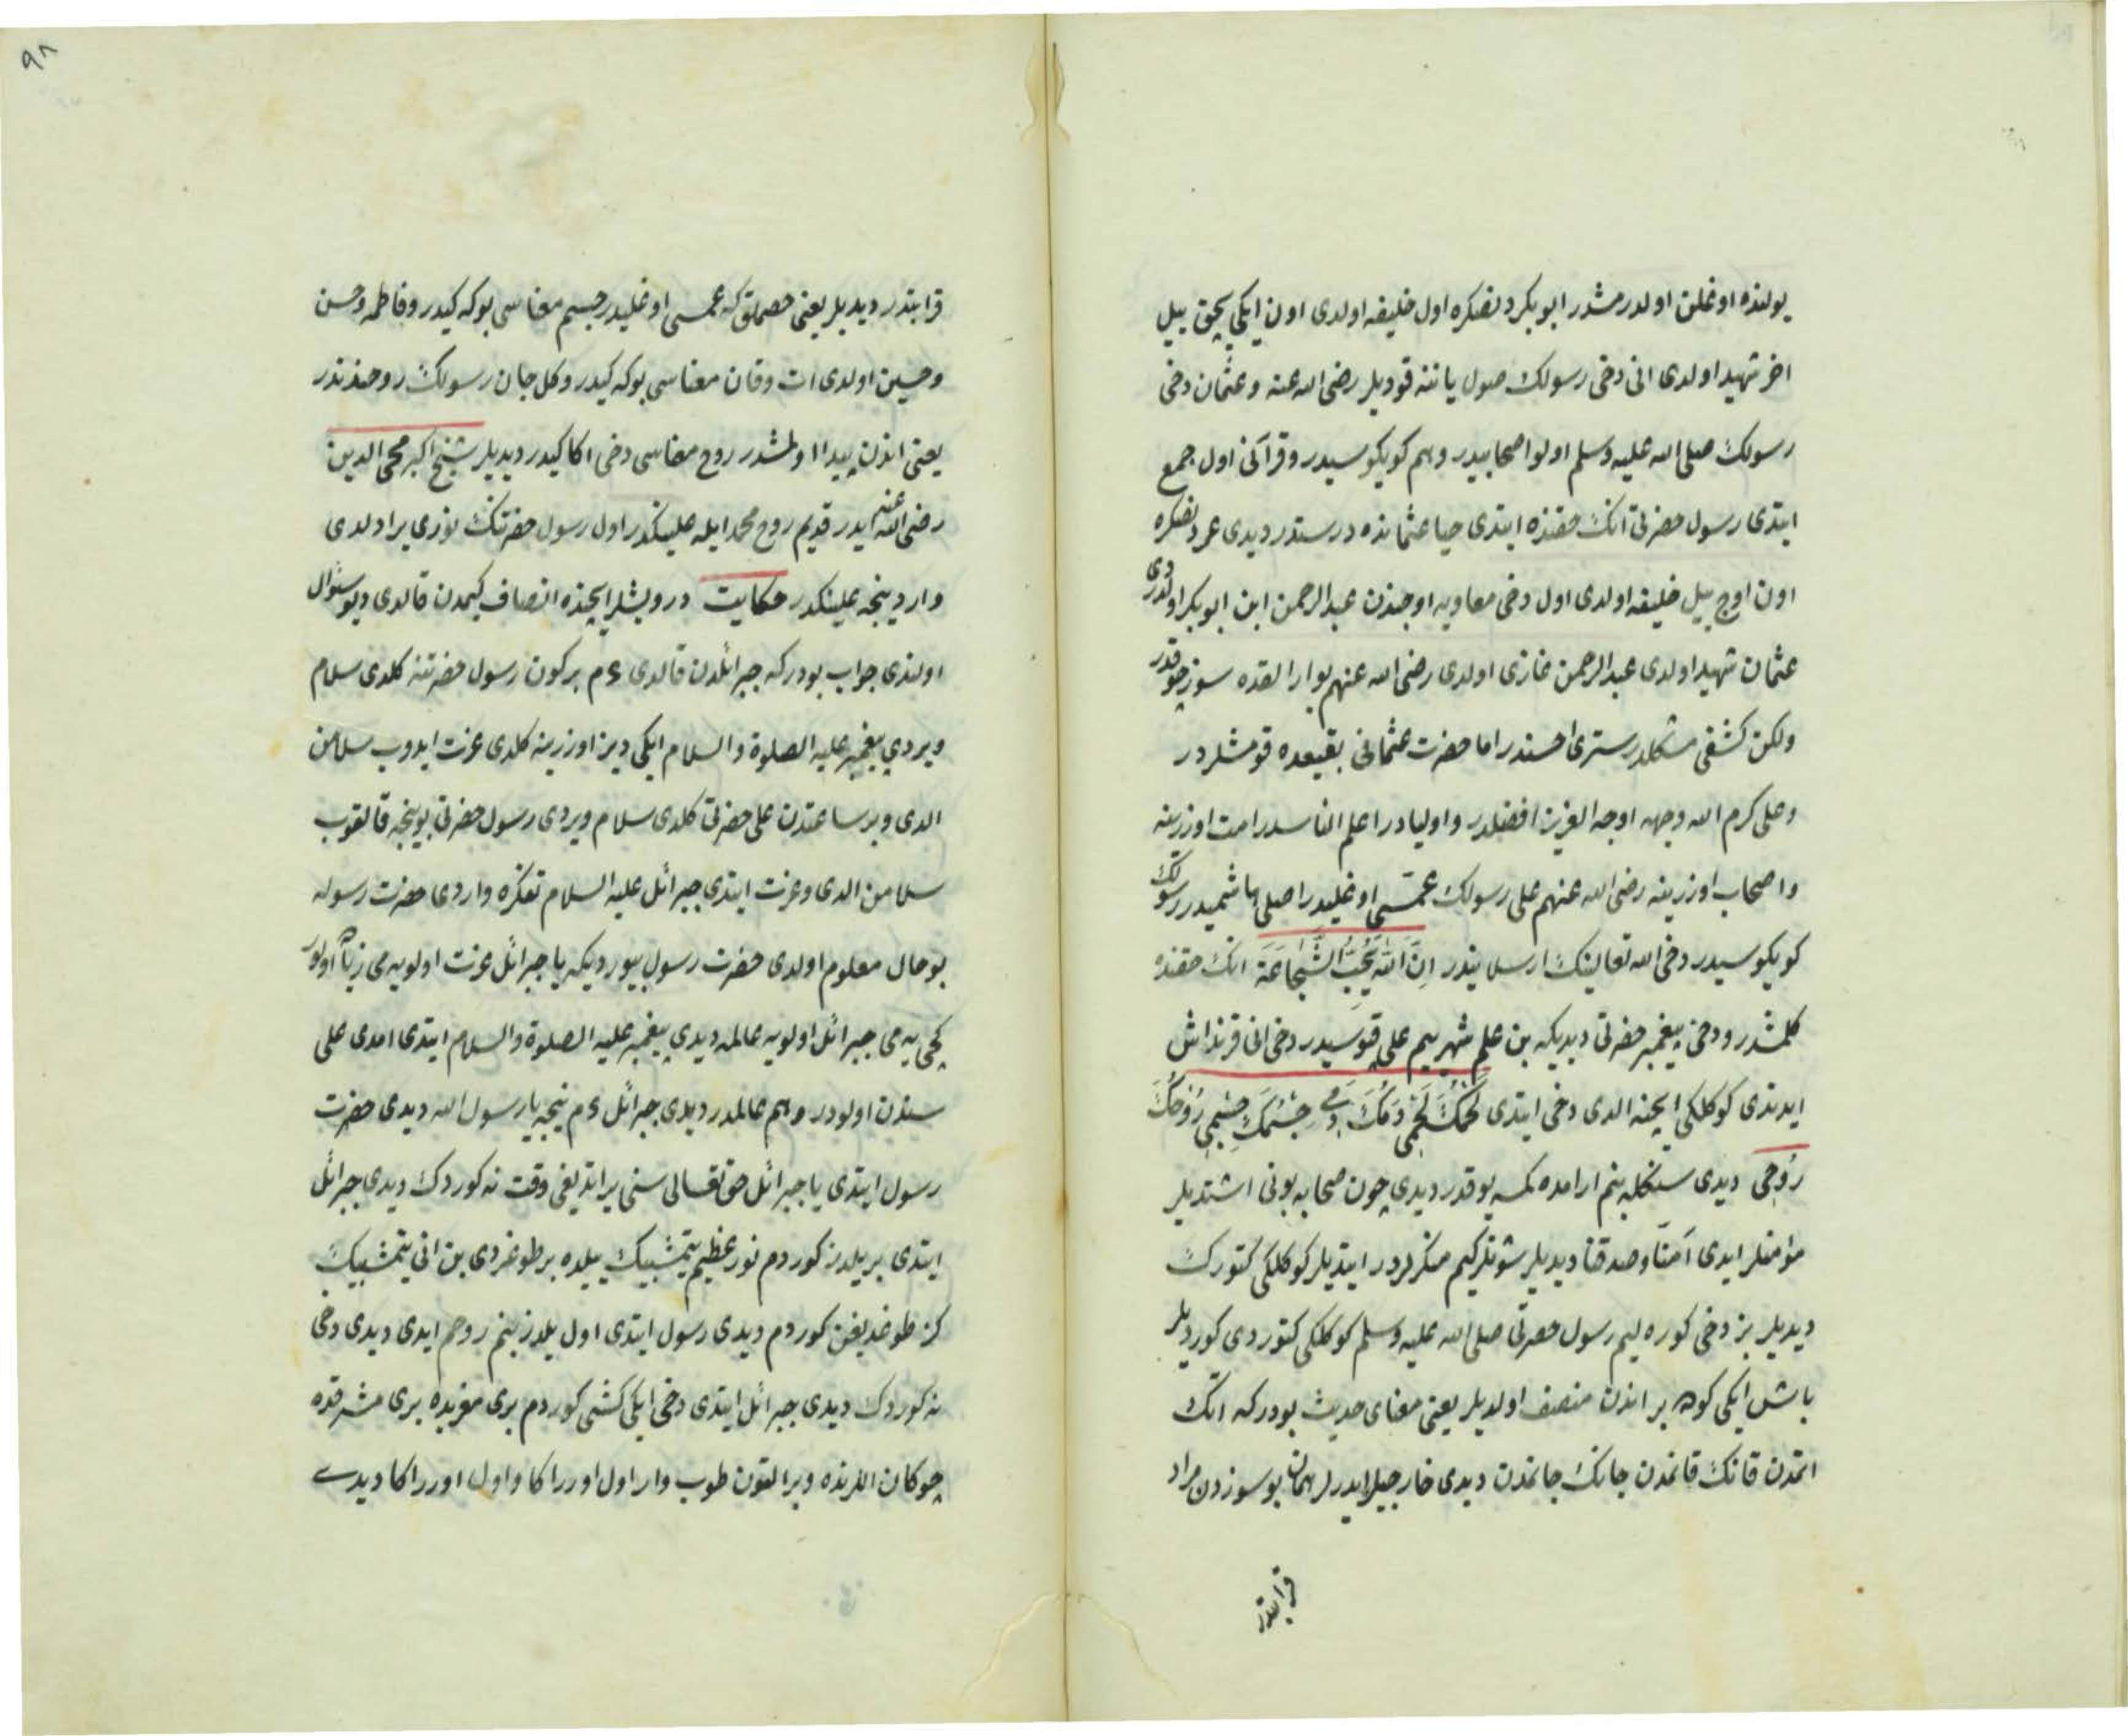 یولنده اوغلن اولدرمشدر ابو بکردنصکره اول خلیفه اولدی اون ایکی بچق ییل
اخر شهید اولدی انی دخی رسولك صول یاننه قودیلر رضی الله عنه وعثمان دخی
رسولك صلی الله علیه وسلم اولو اصحابیدر وهم کویکوسیدر وقرآنی اول جمع
ایتدی رسول حضرتی انك حقنده ایتدی حیا عثمانده درستدر دیدی عمردنصکره
اون اوچ ییل خلیفه اولدی اول دخی معاویه اوجندن عبد الرحمن ابن ابو بکر اولدردی
عثمان شهید اولدی عبد الرحمن غازی اولدی رضی الله عنهم بو ارالقده سوز چوقدر
ولکن کشفی مشکلدر ستری احسندر اما حضرت عثمانی بقیعده قومشلردر
وعلی کرم الله وجهه اوجه العزیز افضلدر واولیادر اعلم الناسدر امت اوزرینه
واصحاب اوزرینه رضی الله عنهم علی رسولك عمّسی اوغلیدر اصلی هاشمیدر رسولك
کویکوسیدر دخی الله تعالینك ارسلانیدر اِنَّ اللهَ یُحِبُّ الشَّجَاعَةَ انك حقنده
کلمشدر ودخی پیغمبر حضرتی دیدیکه بن علم شهرییم علی قپوسیدر دخی انی قرنداش
ایدندی کوکلکی ایچنه الدی دخی ایتدی لَحْمُكَ لَحْمِی دَمُكَ دَمِی جِسْمُكَ جِسْمِی رُوحُكَ
رُوحِی دیدی سنکله بنم ارامده کمسه یوقدر دیدی چون صحابه بونی اشتدیلر
مؤمنلر ایدی آمنّا وصدقنا دیدیلر شونلرکیم منکرلردر ایتدیلر کوکلکی کتورك
دیدیلر بز دخی کوره لیم رسول حضرتی صلی الله علیه وسلم کوکلکی کتوردی کوردیلر
باش ایکی کوده بر اندن منصف اولدیلر یعنی معنای حدیث بودرکه اتك
اتمدن قانك قانمدن جانك جانمدن دیدی خارجیلر ایدرلر همان بو سوزدن مراد
قرابتدر
٩٨
قرابتدر دیدیلر یعنی خصملق که عمسی اوغلیدر جسم معناسی بوکه کیدر وفاطمه وحسن
وحسین اولدی ات وقان معناسی بوکه کیدر وکل جان رسولك روحندندر
یعنی اندن پیدا اولمشدر روح معناسی دخی اکا کیدر دیدیلر شیخ اکبر محی الدین
رضی الله عنه ایدر قدیم روح محمد ایله علینکدر اول رسول حضرتنك نوری یرادلدی
واردینجه علینکدر حکایت درویشلر ایچنده انصاف کیمدن قالدی دیو سئوال
اولندی جواب بودرکه جبرائلدن قالدی ءم بر کون رسول حضرتنه کلدی سلام
ویردی پیغمبر علیه الصلوة والسلام ایکی دیز اوزرینه کلدی عزت ایدوب سلامن
الدی وبر ساعتدن علی حضرتی کلدی سلام ویردی رسول حضرتی بوینجه قالقوب
سلامن الدی وعزت ایتدی جبرائل علیه السلام تفکره واردی حضرت رسوله
بو حال معلوم اولدی حضرت رسول بیوردیکه یا جبرائل عزت اولویه می زیاده اولور
کچی یه می جبرائل اولویه عالمه دیدی پیغمبر علیه الصلوة والسلام ایتدی امدی علی
سندن اولودر وهم عالمدر دیدی جبرائل ءم نیجه یا رسول الله دیدی حضرت
رسول ایتدی یا جبرائل حق تعالی سنی یراتدیغی وقت نه کوردك دیدی جبرائل
ایتدی بر یلدز کوردم نور عظیم یتمشبیك ییلده بر طوغردی بن انی یتمشبیك
کز طوغدیغن کوردم دیدی رسول ایتدی اول یلدز بنم روحم ایدی دیدی دخی
نه کوردك دیدی جبرائل ایتدی دخی ایکی کشی کوردم بری مغربده بری مشرقده
چوکان اللرنده وبر التون طوپ وار اول اورر اکا واول اورر اکا دیدی